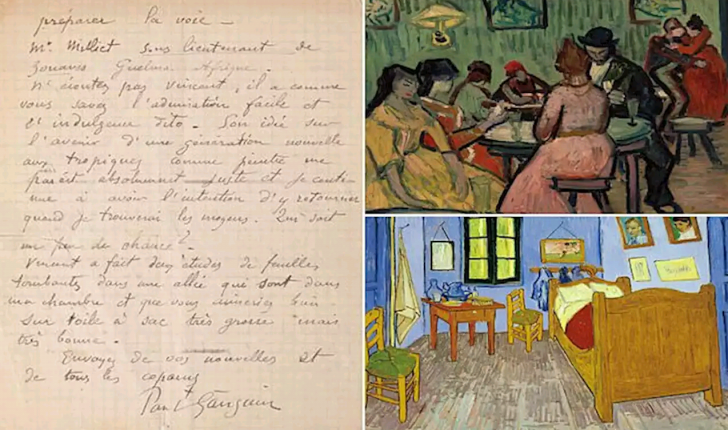 préparer la voie -
Mr Milliet sous lieutenant de
Zouaves Guelma Afrique.
N'écoutez pas Vincent, il a comme
vous savez l'admiration facile et
l'indulgence dito - Son idée sur
l'avenir d'une génération nouvelle
aux tropiques comme peintre me
parait absolument juste et je conti-
nue à avoir l'intention d'y retourner
quand je trouverai les moyens. Qui sait
un peu de chance? -
Vincent a fait deux études de feuilles
tombantes dans une allée qui sont dans
ma chambre et que vous aimeriez bien
sur toile à sac très grosse mais
très bonne -
Envoyez de vos nouvelles et
de tous les copains
Paul Gauguin